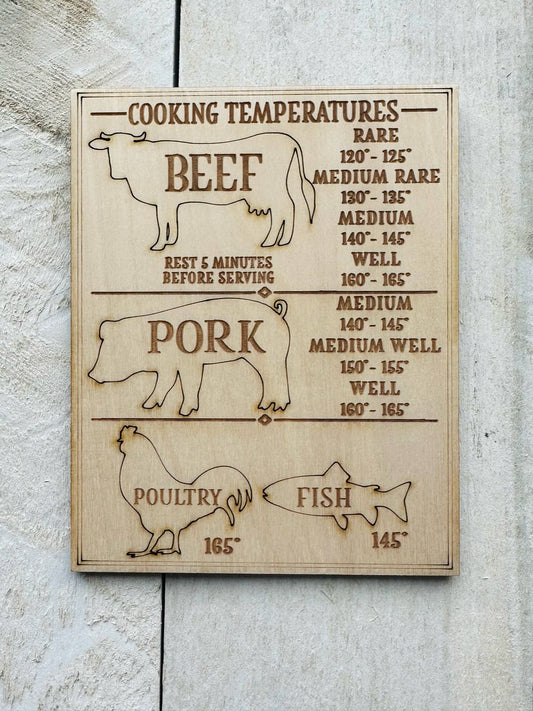 COOKING TEMPERATURES
BEEF
REST 5 MINUTES
BEFORE SERVING
RARE
120°- 125°
MEDIUM RARE
130°- 135°
MEDIUM
140°- 145°
WELL
160°- 165°
PORK
MEDIUM
140°- 145°
MEDIUM WELL
150°- 155°
WELL
160°- 165°
POULTRY
165°
FISH
145°